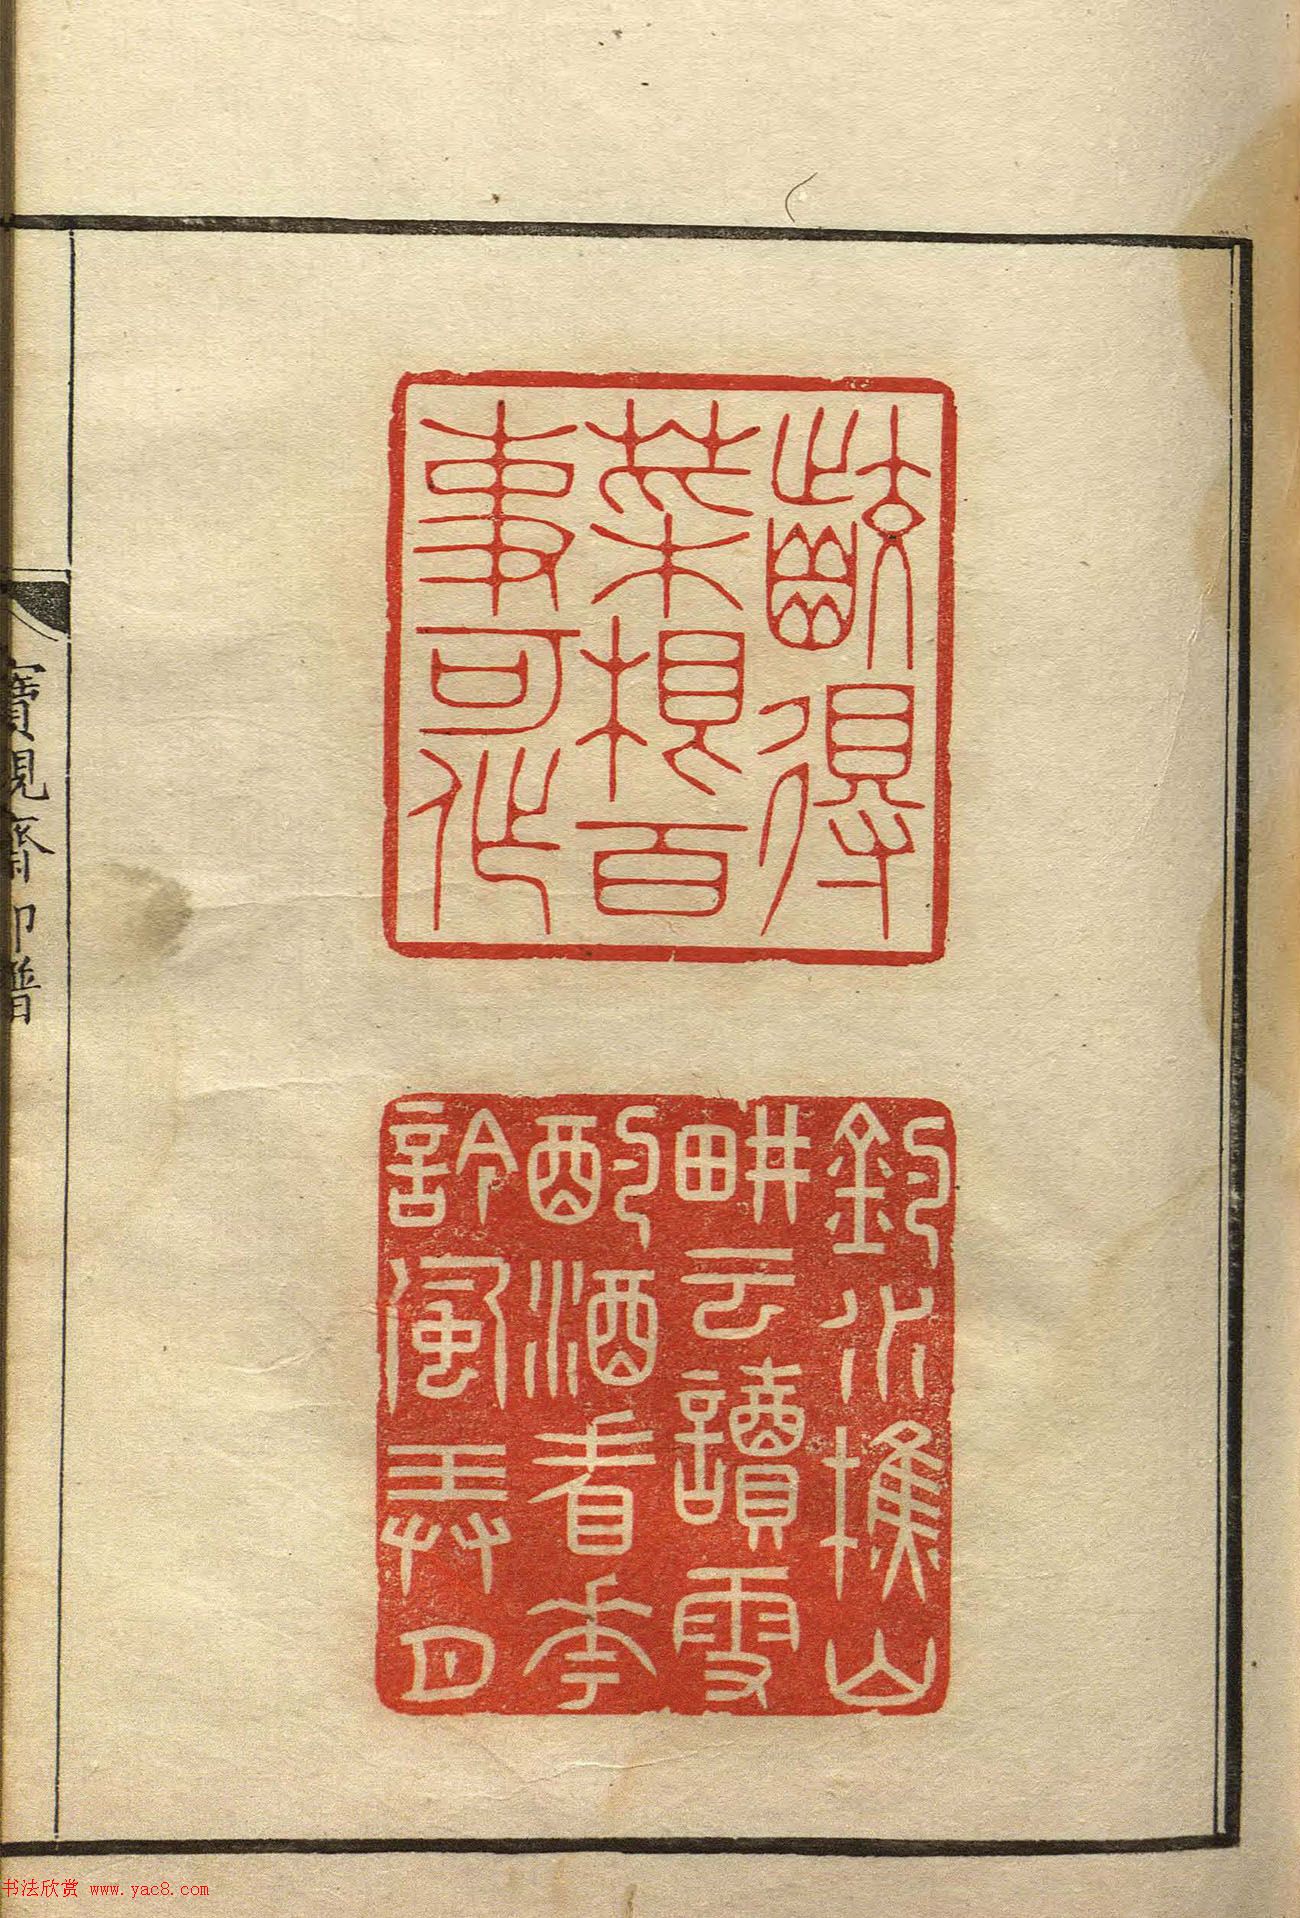 齩得
菜根百
事可作
釣水樵山
畊云讀雪
酌酒看
訡風 月
寶硯齋印譜
书法欣赏 www.yac8.com